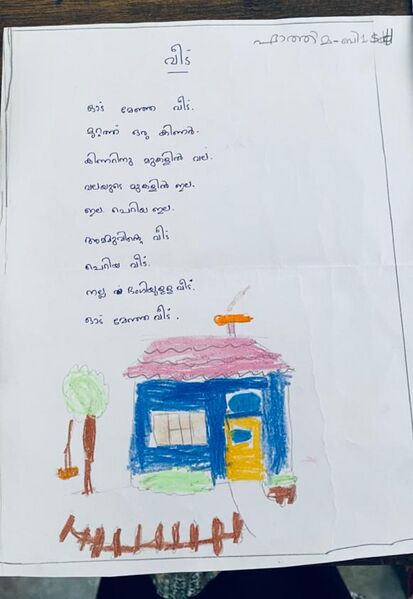 ഫാത്തിമ-ബി
വീട്
ഓട് മേഞ്ഞ വീട്.
മുറ്റത്ത് ഒരു കിണർ.
കിണറിനു മുകളിൽ വല.
വലയുടെ മുകളിൽ ഇല.
ഇല ചെറിയ ഇല.
അമ്മുവിന്റെ വീട്
ചെറിയ വീട്.
നല്ല ഭംഗിയുള്ള വീട്.
ഓട് മേഞ്ഞ വീട്.